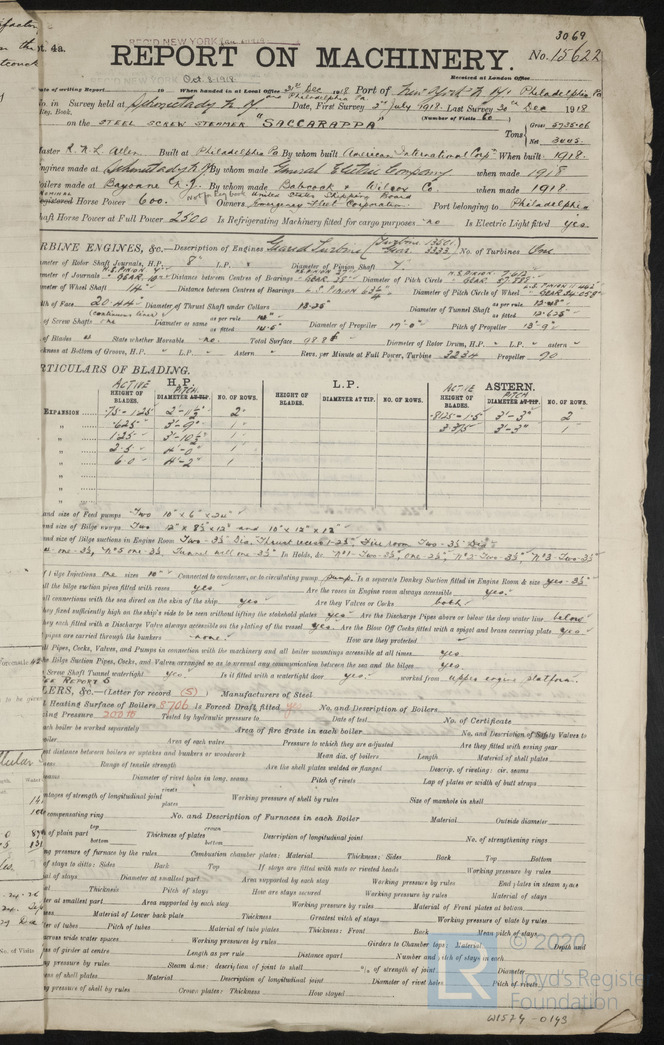 3069
pt. 4a.
REC'D NEW YORK Jan
REPORT ON MACHINERY.
No. 15622
Received at London Office
REC'D NEW YORK Oct. 8. 1918
Date of writing Report 19 When handed in at Local Office 31st Dec 1918 Port of New York N.Y. Philadelphia Pa
No. in Survey held at Schenectady N.Y. and Philadelphia Pa Date, First Survey 3d July 1918 Last Survey 30th Dec 1918
Reg. Book. (Number of Visits 60)
on the STEEL SCREW STEAMER "SACCARAPPA"
Tons Gross 5735.06
Net
Master R.K.L. Allen Built at Philadelphia Pa By whom built American International Corp When built 1918
Engines made at Schenectady N.Y. By whom made General Electric Company when made 1918
Boilers made at Bayonne N.J. By whom made Babcock & Wilcox Co. when made 1918
Registered Horse Power 600. Owners United States Shipping Board Emergency Fleet Corporation Port belonging to Philadelphia
Shaft Horse Power at Full Power 2500 Is Refrigerating Machinery fitted for cargo purposes no Is Electric Light fitted yes.
TURBINE ENGINES, &c.—Description of Engines Geared Turbine (Turbine 13501 Gear 3333) No. of Turbines One
Diameter of Rotor Shaft Journals, H.P. 8" L.P. Diameter of Pinion Shaft 7"
Diameter of Journals Distance between Centres of Bearings Diameter of Pitch Circle
Diameter of Wheel Shaft 14" Distance between Centres of Bearings Diameter of Pitch Circle of Wheel
Width of Face 20+44" Diameter of Thrust Shaft under Collars 13.25" Diameter of Tunnel Shaft as per rule 12.48" as fitted 12.625"
No. of Screw Shafts one (continuous liner) Diameter of same as per rule as fitted 14.5" Diameter of Propeller 17'-0" Pitch of Propeller 13'-9"
No. of Blades 4 State whether Moveable no. Total Surface Diameter of Rotor Drum, H.P. L.P. astern
Thickness at Bottom of Groove, H.P. L.P. Astern Revs. per Minute at Full Power, Turbine 3234 Propeller 90
PARTICULARS OF BLADING.
H.P. L.P. ASTERN.
ACTIVE HEIGHT OF BLADES. PITCH DIAMETER AT TIP. NO. OF ROWS. HEIGHT OF BLADES. DIAMETER AT TIP. NO. OF ROWS. ACTIVE HEIGHT OF BLADES. PITCH DIAMETER AT TIP. NO. OF ROWS.
EXPANSION .75-1.25 2 .8125-1.5 3'-3" 2
.625 3'-9" 1 3.375 3'-3" 1
1.25 3'-10½" 1
2.5 4'-0" 1
6.0 4'-2" 1
and size of Feed pumps Two 10" x 6" x 24"
and size of Bilge pumps Two 12" x 8½ x 12" and 10" x 12" x 12"
and size of Bilge suctions in Engine Room Two-3½" Dia. Thrust recess 1-2½", Fire room Two-3½" Dia
No 5 one 3½, Tunnel well one 3½" In Holds, &c. No 1-Two-3½", one-2½", No 2-Two-3½", No 3-Two-3½"
of Bilge Injections one sizes 10" Connected to condenser, or to circulating pump pump. Is a separate Donkey Suction fitted in Engine Room & size yes-3½"
all the bilge suction pipes fitted with roses yes Are the roses in Engine room always accessible yes.
all connections with the sea direct on the skin of the ship yes Are they Valves or Cocks both
they fixed sufficiently high on the ship's side to be seen without lifting the stokehold plates yes Are the Discharge Pipes above or below the deep water line below
they each fitted with a Discharge Valve always accessible on the plating of the vessel yes Are the Blow Off Cocks fitted with a spigot and brass covering plate yes
pipes are carried through the bunkers none. How are they protected
all Pipes, Cocks, Valves, and Pumps in connection with the machinery and all boiler mountings accessible at all times yes
the Bilge Suction Pipes, Cocks, and Valves arranged so as to prevent any communication between the sea and the bilges yes.
Screw Shaft Tunnel watertight yes. Is it fitted with a watertight door yes. worked from Upper engine platform.
See REPORT 6
BOILERS, &c.—(Letter for record (S)) Manufacturers of Steel
Heating Surface of Boilers 8706 Is Forced Draft fitted yes No. and Description of Boilers
Working Pressure 200 lb Tested by hydraulic pressure to Date of test No. of Certificate
each boiler be worked separately Area of fire grate in each boiler No. and Description of Safety Valves to
boiler Area of each valve Pressure to which they are adjusted Are they fitted with easing gear
est distance between boilers or uptakes and bunkers or woodwork Mean dia. of boilers Length Material of shell plates
Range of tensile strength Are the shell plates welded or flanged Descrip. of riveting: cir. seams
seams Diameter of rivet holes in long. seams Pitch of rivets Lap of plates or width of butt straps
entages of strength of longitudinal joint rivets plates Working pressure of shell by rules Size of manhole in shell
compensating ring No. and Description of Furnaces in each Boiler Material Outside diameter
of plain part top bottom Thickness of plates crown bottom Description of longitudinal joint No. of strengthening rings
ng pressure of furnace by the rules Combustion chamber plates: Material Thickness: Sides Back Top Bottom
of stays to ditto: Sides Back Top If stays are fitted with nuts or riveted heads Working pressure by rules
of stays Diameter at smallest part Area supported by each stay Working pressure by rules End plates in steam space
al Thickness Pitch of stays How are stays secured Working pressure by rules Material of stays
ter at smallest part Area supported by each stay Working pressure by rules Material of Front plates at bottom
Material of Lower back plate Thickness Greatest pitch of stays Working pressure of plate by rules
ter of tubes Pitch of tubes Material of tube plates Thickness: Front Back Mean pitch of stays
across wide water spaces Working pressures by rules Girders to Chamber tops: Material Depth and
ess of girder at centre Length as per rule Distance apart Number and pitch of stays in each
ng pressure by rules Steam dome: description of joint to shell % of strength of joint Diameter
ess of shell plates Material Description of longitudinal joint Diameter of rivet holes Pitch of rivets
ng pressure of shell by rules Crown plates: Thickness How stayed
LR © 2020
Lloyd's Register
Foundation
W1574-0143